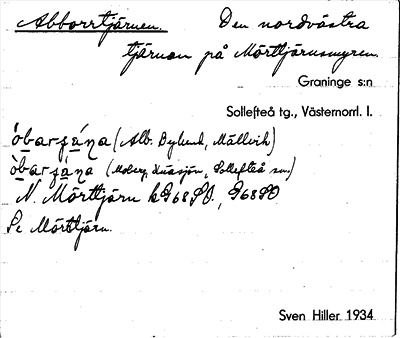 Abborrtjärnen. Den nordvästra
tjärnen på Mörttjärnsmyren.
Graninge s:n
Sollefteå tg., Västernorrl. l.
òbarʂä́na (Alb. Bylund, Mällvik)
òbarʂä́na (Moberg, Sollefteå sn.)
N. Mörttjärn
Se Mörttjärn.
Sven Hiller 1934